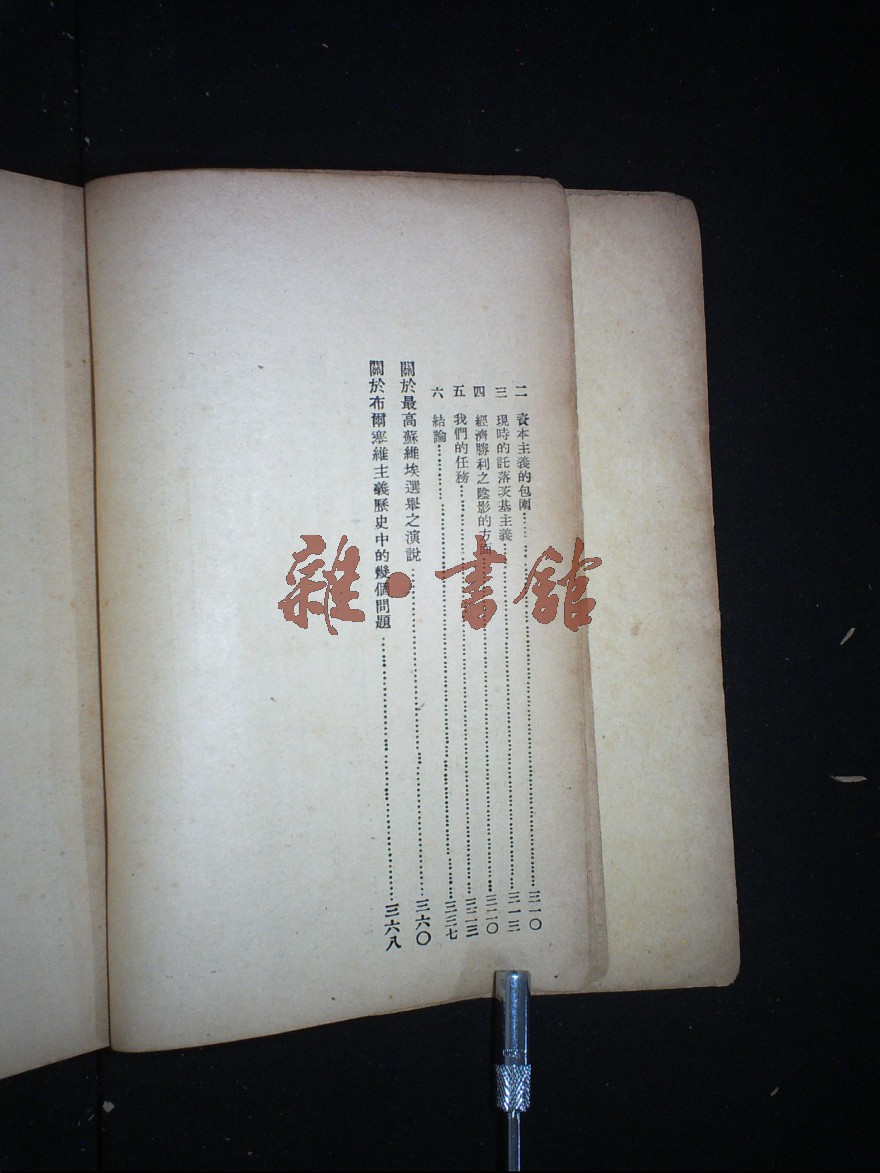 二　資本主義的包圍……三一〇
三　現時的託落茨基主義……三一三
四　經濟勝利之陰影的方面……三二〇
五　我們的任務……三二三
六　結論……三三七
關於最高蘇維埃選舉之演說……三六〇
關於布爾塞維主義歷史中的幾個問題……三六八
雜·書館